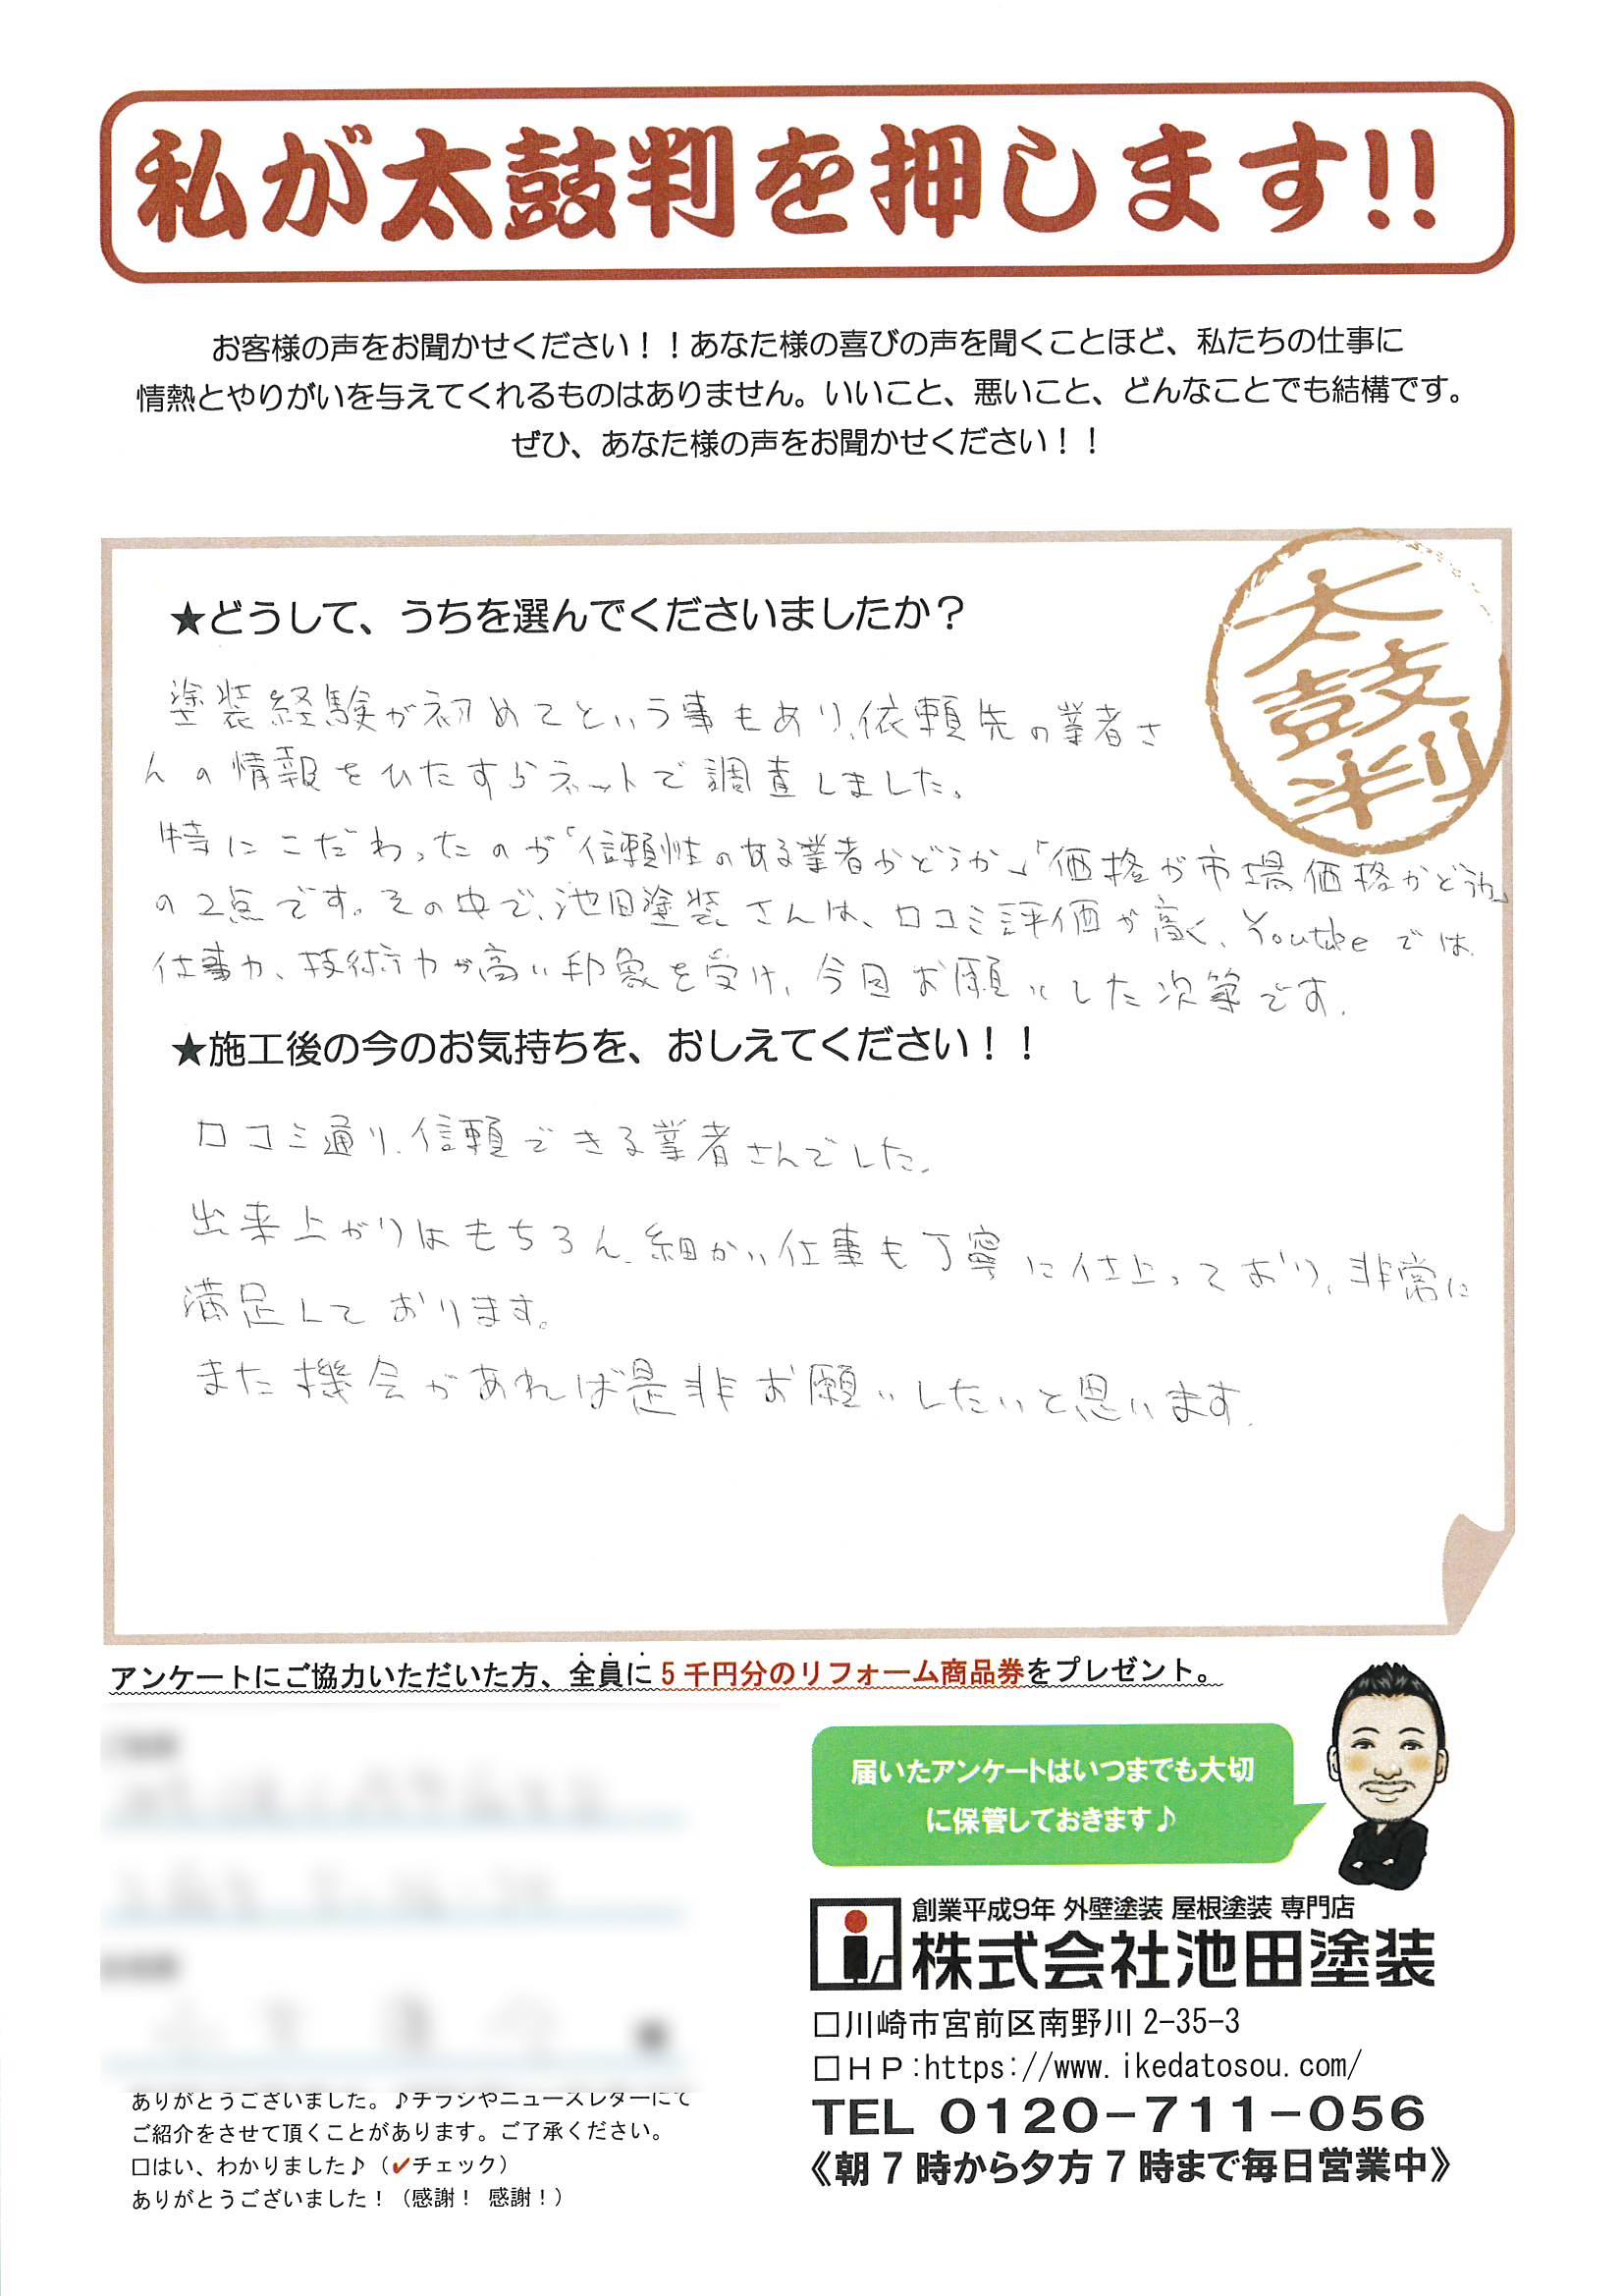 私が太鼓判を押します!!
お客様の声をお聞かせください！！あなた様の喜びの声を聞くことほど、私たちの仕事に
情熱とやりがいを与えてくれるものはありません。いいこと、悪いこと、どんなことでも結構です。
ぜひ、あなた様の声をお聞かせください！！
太鼓判
★どうして、うちを選んでくださいましたか？
塗装経験が初めてという事もあり、依頼先の業者さ
んの情報をひたすらネットで調査しました。
特にこだわったのが「信頼性のある業者かどうか」「価格が市場価格かどうか」
の2点です。その中で、池田塗装さんは、口コミ評価が高く、Youtubeでは
仕事力、技術力が高い印象を受け、今回お願いした次第です。
★施工後の今のお気持ちを、おしえてください！！
口コミ通り、信頼できる業者さんでした。
出来上がりはもちろん、細かい仕事も丁寧に仕上っており、非常に
満足しております。
また機会があれば是非お願いしたいと思います。
アンケートにご協力いただいた方、全員に5千円分のリフォーム商品券をプレゼント。
届いたアンケートはいつまでも大切
に保管しておきます♪
創業平成9年 外壁塗装 屋根塗装 専門店
株式会社池田塗装
□川崎市宮前区南野川2-35-3
□ＨＰ:https://www.ikedatosou.com/
TEL 0120-711-056
《朝7時から夕方7時まで毎日営業中》
ありがとうございました。♪チラシやニュースレターにて
ご紹介をさせて頂くことがあります。ご了承ください。
□はい、わかりました♪（✔チェック）
ありがとうございました！（感謝！ 感謝！）